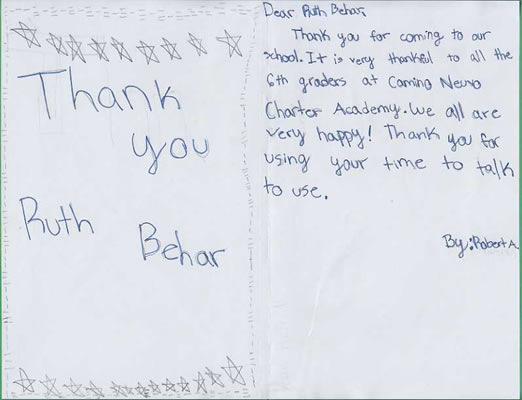 Thank
you
Ruth
Behar
Dear Ruth Behar,
Thank you for coming to our
school. It is very thankful to all the
6th graders at Camino Neuvo
Charter Academy. We all are
very happy! Thank you for
using your time to talk
to use.
By: Robert A.